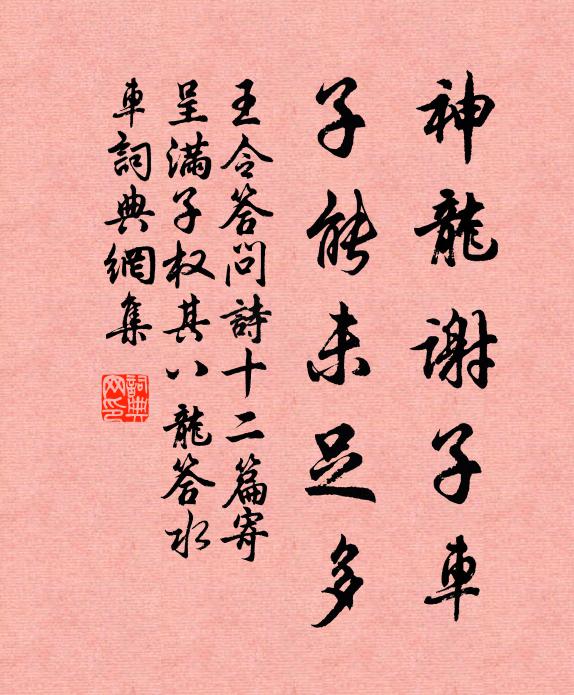 神龍謝子車
子能未足多
王令答問詩十二篇寄
呈滿子权其八龍答水
車詞典網集
詞典
网印